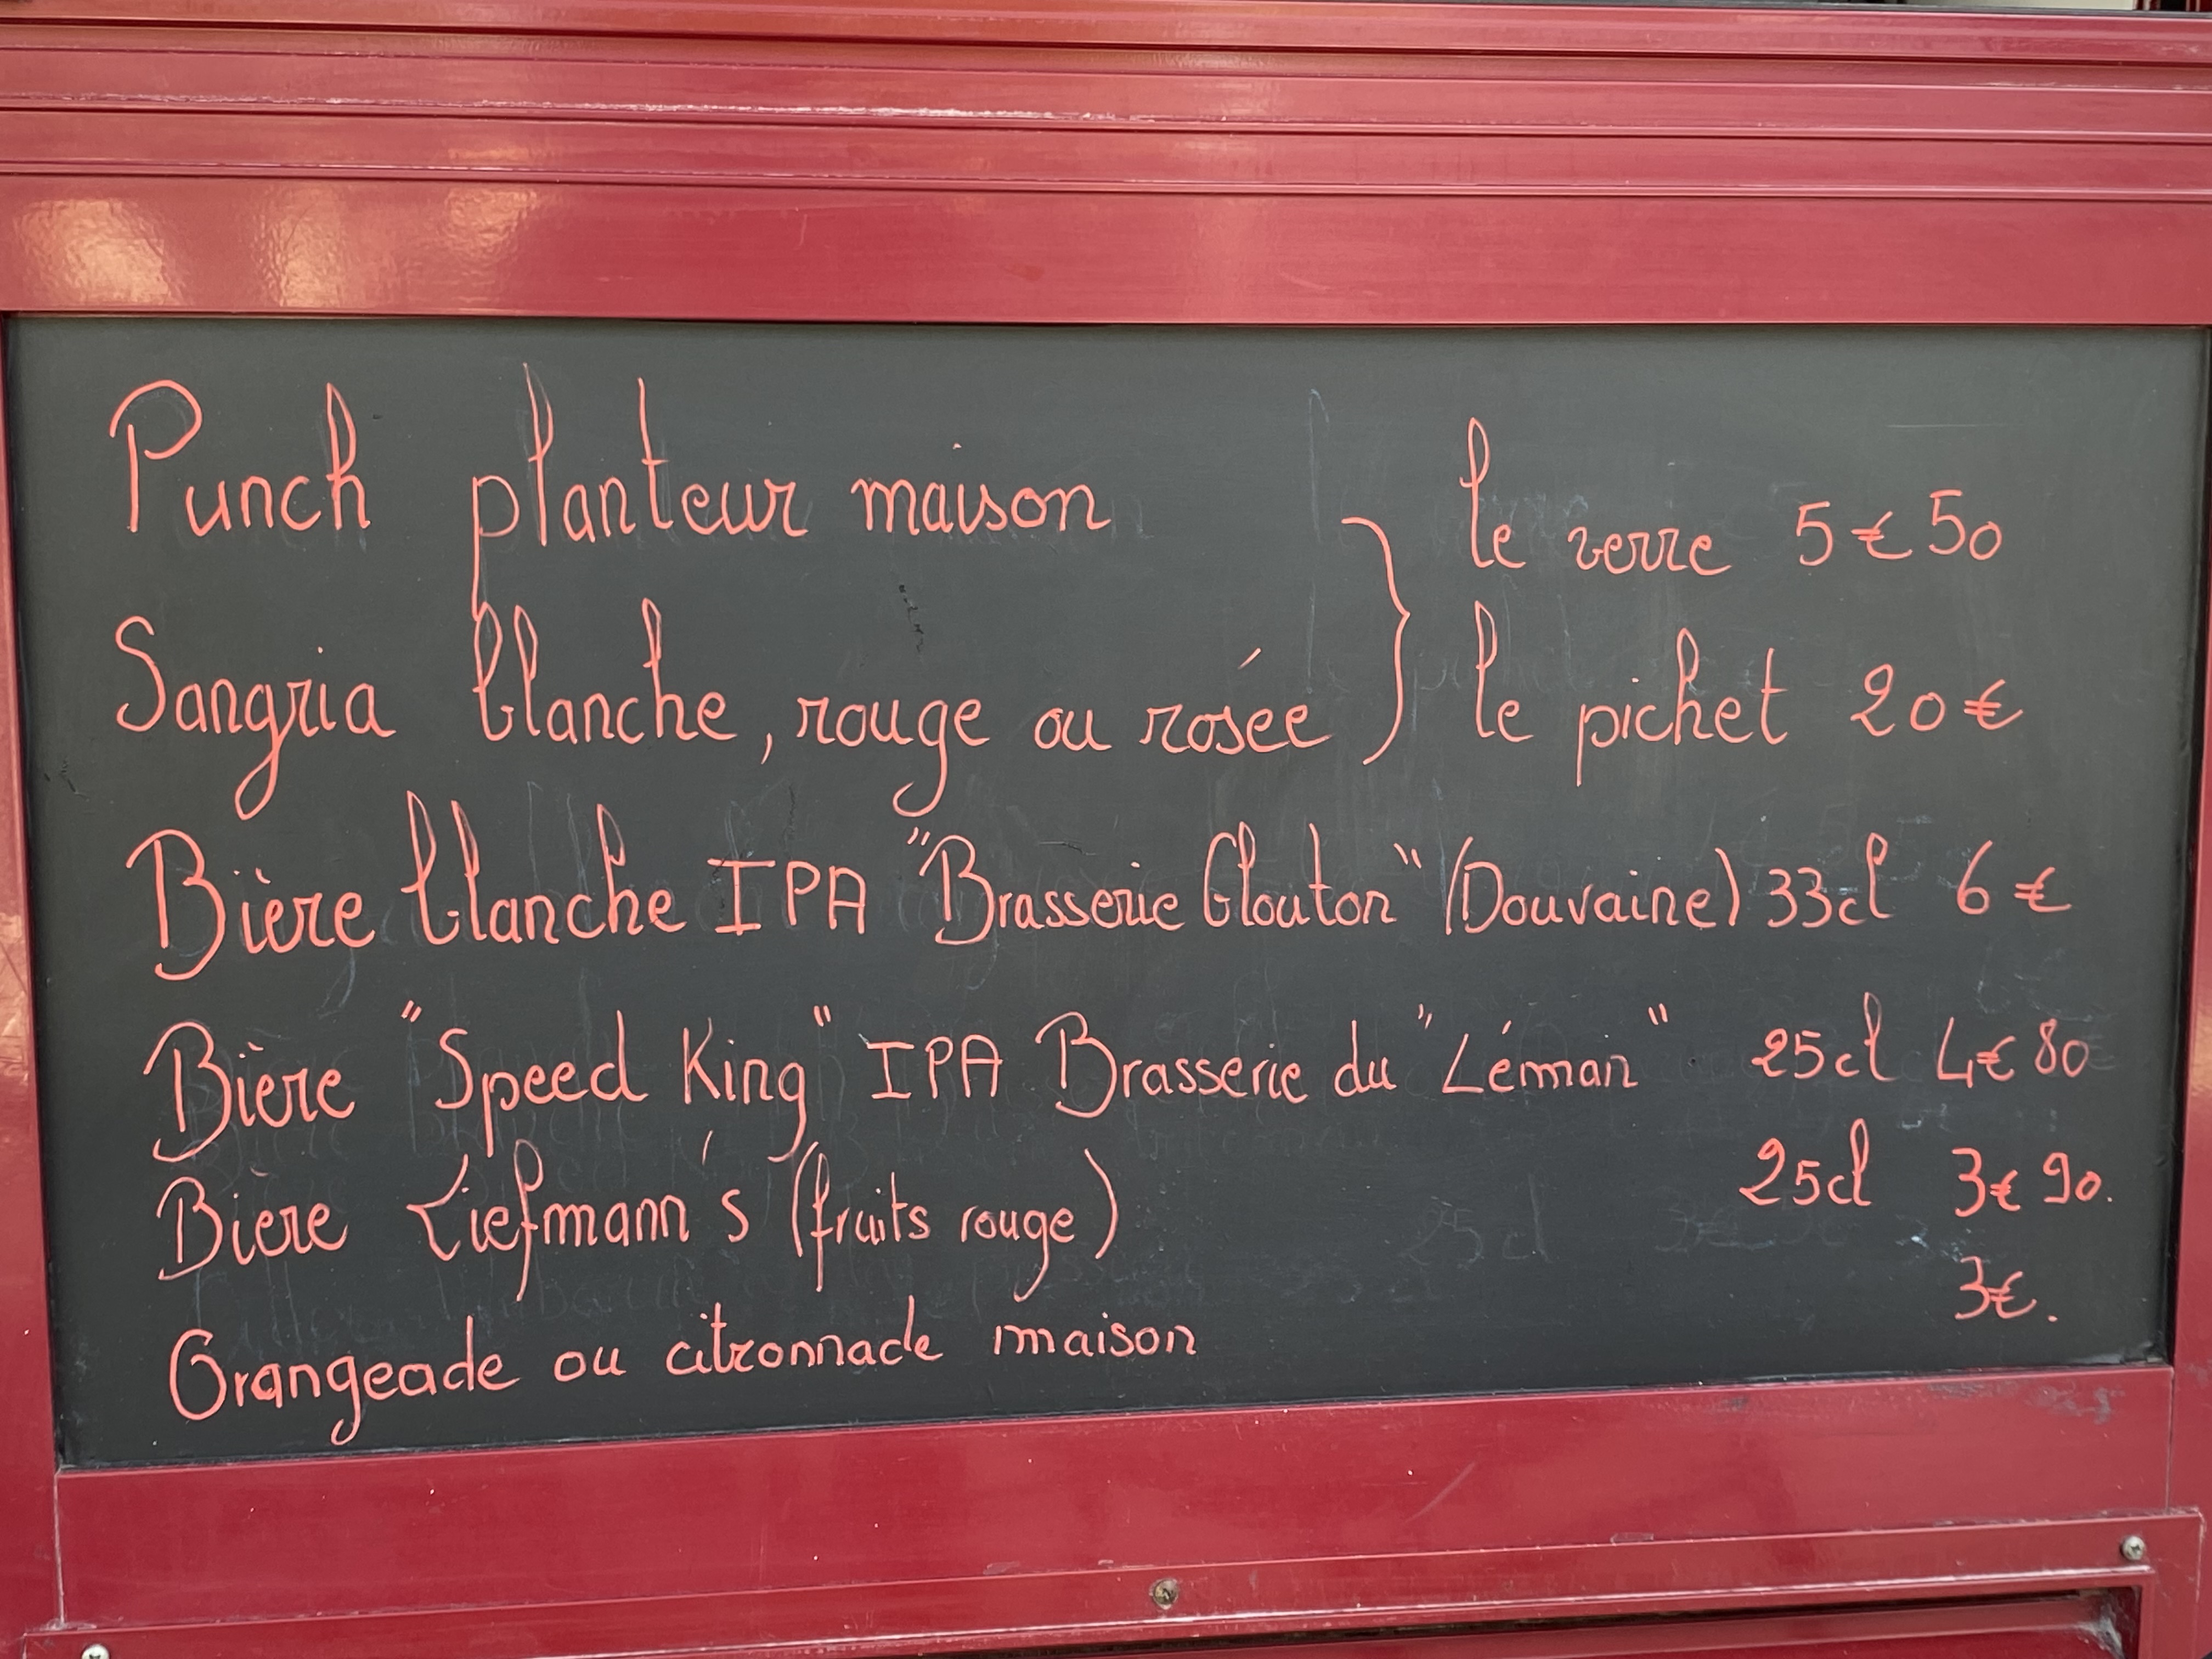 Punch planteur maison
le verre 5€50
Sangria blanche, rouge ou rosée
le pichet 20€
Bière blanche IPA "Brasserie Glouton" (Douvaine) 33cl 6€
Bière "Speed King" IPA Brasserie du "Léman" 25cl 4€80
Bière Liefmann's (fruits rouge) 25cl 3€90.
Orangeade ou citronnade maison 3€.